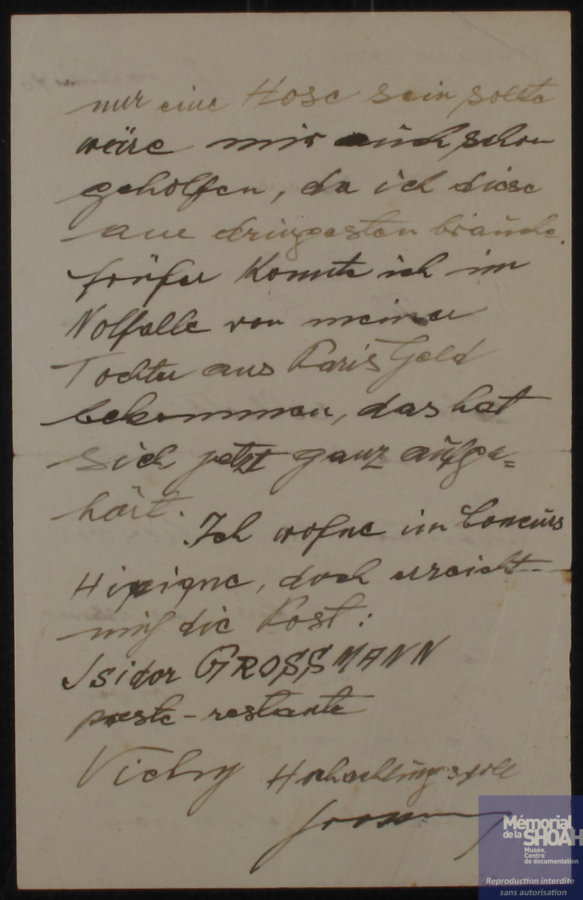 nur eine Hose sein sollte
wäre mir auch schon
geholfen, da ich diese
am dringesten brauche.
früher konnte ich im
Notfalle von meiner
Tochter aus Paris Geld
bekommen, das hat
sich jetzt ganz aufge=
hört.
Ich wohne im Concurs
Hipique, doch erreicht
mich die Post:
Isidor GROSSMANN
poste-restante
Vichy Hochachtungsvoll
Mémorial
de la SHOAH
Musée,
Centre
de documentation
Reproduction interdite
sans autorisation